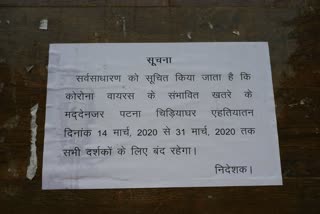 सूचना
सर्वसाधारण को सूचित किया जाता है कि
कोरोना वायरस के संभावित खतरे के
मद्देनजर पटना चिड़ियाघर एहतियातन
दिनांक 14 मार्च, 2020 से 31 मार्च, 2020 तक
सभी दर्शकों के लिए बंद रहेगा।
निदेशक।